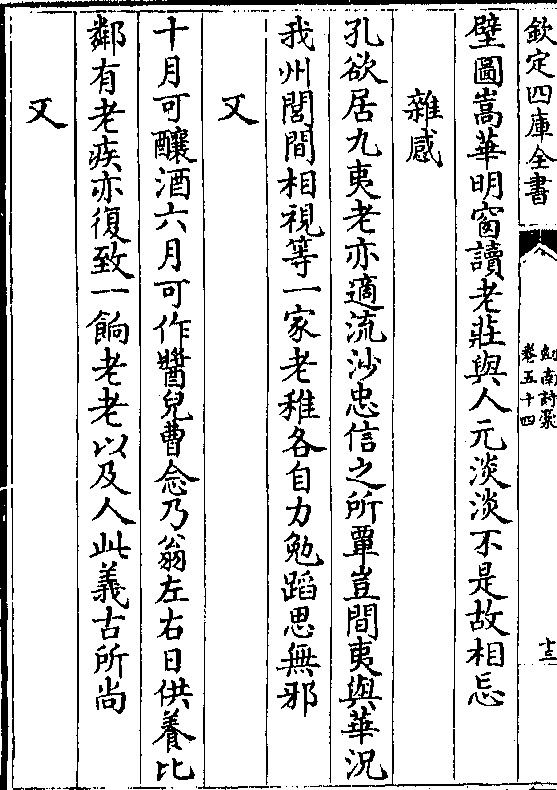 欽定四庫全書
劍南詩藁
卷五十四
十三
壁圖嵩華明窗讀老莊與人元淡淡不是故相忘
雜感
孔欲居九夷老亦適流沙忠信之所覃豈間夷與華況
我州閭間相視等一家老稚各自力勉蹈思無邪
又
十月可釀酒六月可作醬兒曹念乃翁左右日供養比
鄰有老疾亦復致一餉老老以及人此義古所尚
又